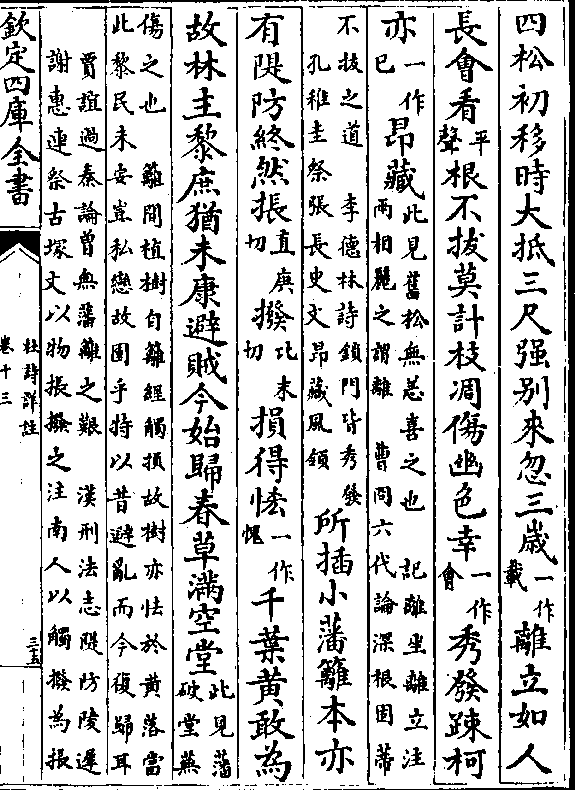 四松初移時大抵三尺强别來忽三歲一作載離立如人
長會看平聲根不拔莫計枝凋傷幽色幸一作會秀發踈柯
亦一作已昂藏此見舊松無恙喜之也　記離坐離立注兩相麗之謂離　曹冏六代論深根固蔕
不拔之道　李德林詩鎖門皆秀發孔稚圭祭張長史文昂藏風領所插小藩籬本亦
有隄防終然掁直庚切撥比末切損得恡一作愧千葉黄敢為
故林主黎庶猶未康避賊今始歸春草滿空堂此見藩破堂蕪
傷之也　籬間植樹自籬經觸損故樹亦恡於黄落當
此黎民未安豈私戀故園乎特以昔避亂而今復歸耳
賈誼過秦論曾無藩籬之艱　漢刑法志隄防陵遲
謝惠連祭古塚文以物掁撥之注南人以觸撥為掁
欽定四庫全書
杜詩詳註
卷十三
三五